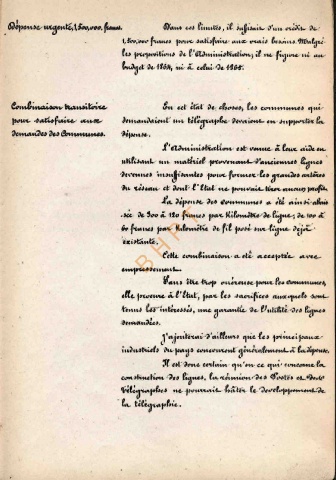 Dépense urgente, 1,500,000 francs.
Dans ces limites, il suffisait d'un crédit de
1,500,000 francs pour satisfaire aux vrais besoins. Malgré
les propositions de l'Administration, il ne figure ni au
budget de 1864, ni à celui de 1865.
Combinaison transitoire
pour satisfaire aux
demandes des Communes.
En cet état de choses, les communes qui
demandaient un télégraphe devaient en supporter la
dépense.
L'Administration est venue à leur aide en
utilisant un matériel provenant d'anciennes lignes
devenues insuffisantes pour former les grandes artères
du réseau et dont l'État ne pouvait tirer aucun profit.
La dépense des communes a été ainsi abais-
sée de 300 à 120 francs par kilomètre de ligne; de 100 à
60 francs par kilomètre de fil posé sur ligne déjà
existante.
Cette combinaison a été acceptée avec
empressement.
Sans être trop onéreuse pour les communes,
elle procure à l'État, par les sacrifices auxquels sont
tenus les intéressés, une garantie de l'utilité des lignes
demandées.
J'ajouterai d'ailleurs que les principaux
industriels du pays concourent généralement à la dépense.
Il est donc certain qu'en ce qui concerne la
construction des lignes, la réunion des Postes et des
Télégraphes ne pourrait hâter le développement de
la télégraphie.